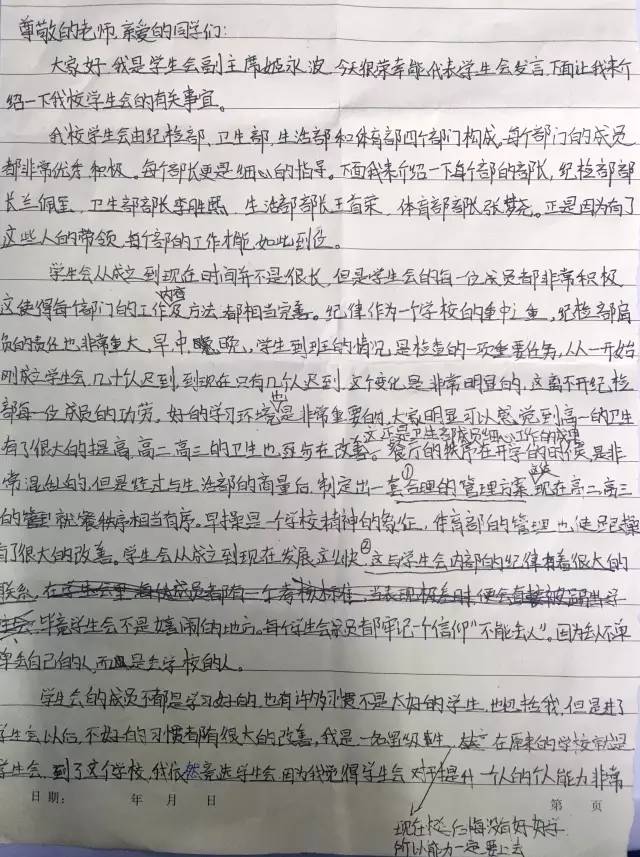 尊敬的老师,亲爱的同学们:
大家好,我是学生会副主席姬永波,今天很荣幸能代表学生会发言,下面让我来介
绍一下我校学生会的有关事宜。
我校学生会由纪检部,卫生部,生活部和体育部四个部门构成。每个部门的成员
都非常优秀积极。每个部长更是细心的指导。下面我来介绍一下每个部的部长,纪检部部
长兰佩,卫生部部长李胜熙,生活部部长王首荣,体育部部长张梦尧。正是因为有了
这些人的带领,每个部的工作才能如此到位。
学生会从成立到现在时间并不是很长,但是学生会的每一位成员都非常积极
这使得每个部门的工作内容及方法都相当完善。纪律作为一个学校的重中之重,纪检部肩
负的责任也非常重大,早,中,晚,学生到班的情况是检查的一项重要任务,从一开始
刚成立学生会,几十个人迟到,到现在只有几个人迟到,这个变化是非常明显的,这离不开纪检
部每一位成员的功劳。好的学习环境也是非常重要的,大家明显可以感觉到高一的卫生
有了很大的提高,高二高三的卫生也在改善。这正是卫生部成员细心工作的成果
餐厅的秩序在开学的时候是非
常混乱的,但是经过与生活部的商量后,制定出一套①合理的管理方案,现在高二高三
的就餐秩序相当有序。早操是一个学校精神的象征,体育部的管理也使早操
有了很大的改善。学生会从成立到现在发展这么快,②这与学生会内部的纪律有着很大的
联系,在学生会里每位成员都有一个考核标准,当表现极差时便会直接被
毕竟学生会不是嬉闹的地方。每个学生会成员都牢记一个信仰“不能丢人”。因为丢不单
单丢自己的人,而是丢学校的人。
学生会的成员不都是学习好的,也有许多习惯不是太好的学生,也包括我,但是进了
学生会以后,不好的习惯都有很大的改善,我是一名留级生,在原来的学校就是
学生会,到了这个学校,我依然竞选学生会,因为我觉得学生会对于提升一个人的个人能力非常
日期: 年 月 日 第 页
现在后悔没有好好学
所以能力一定要上去